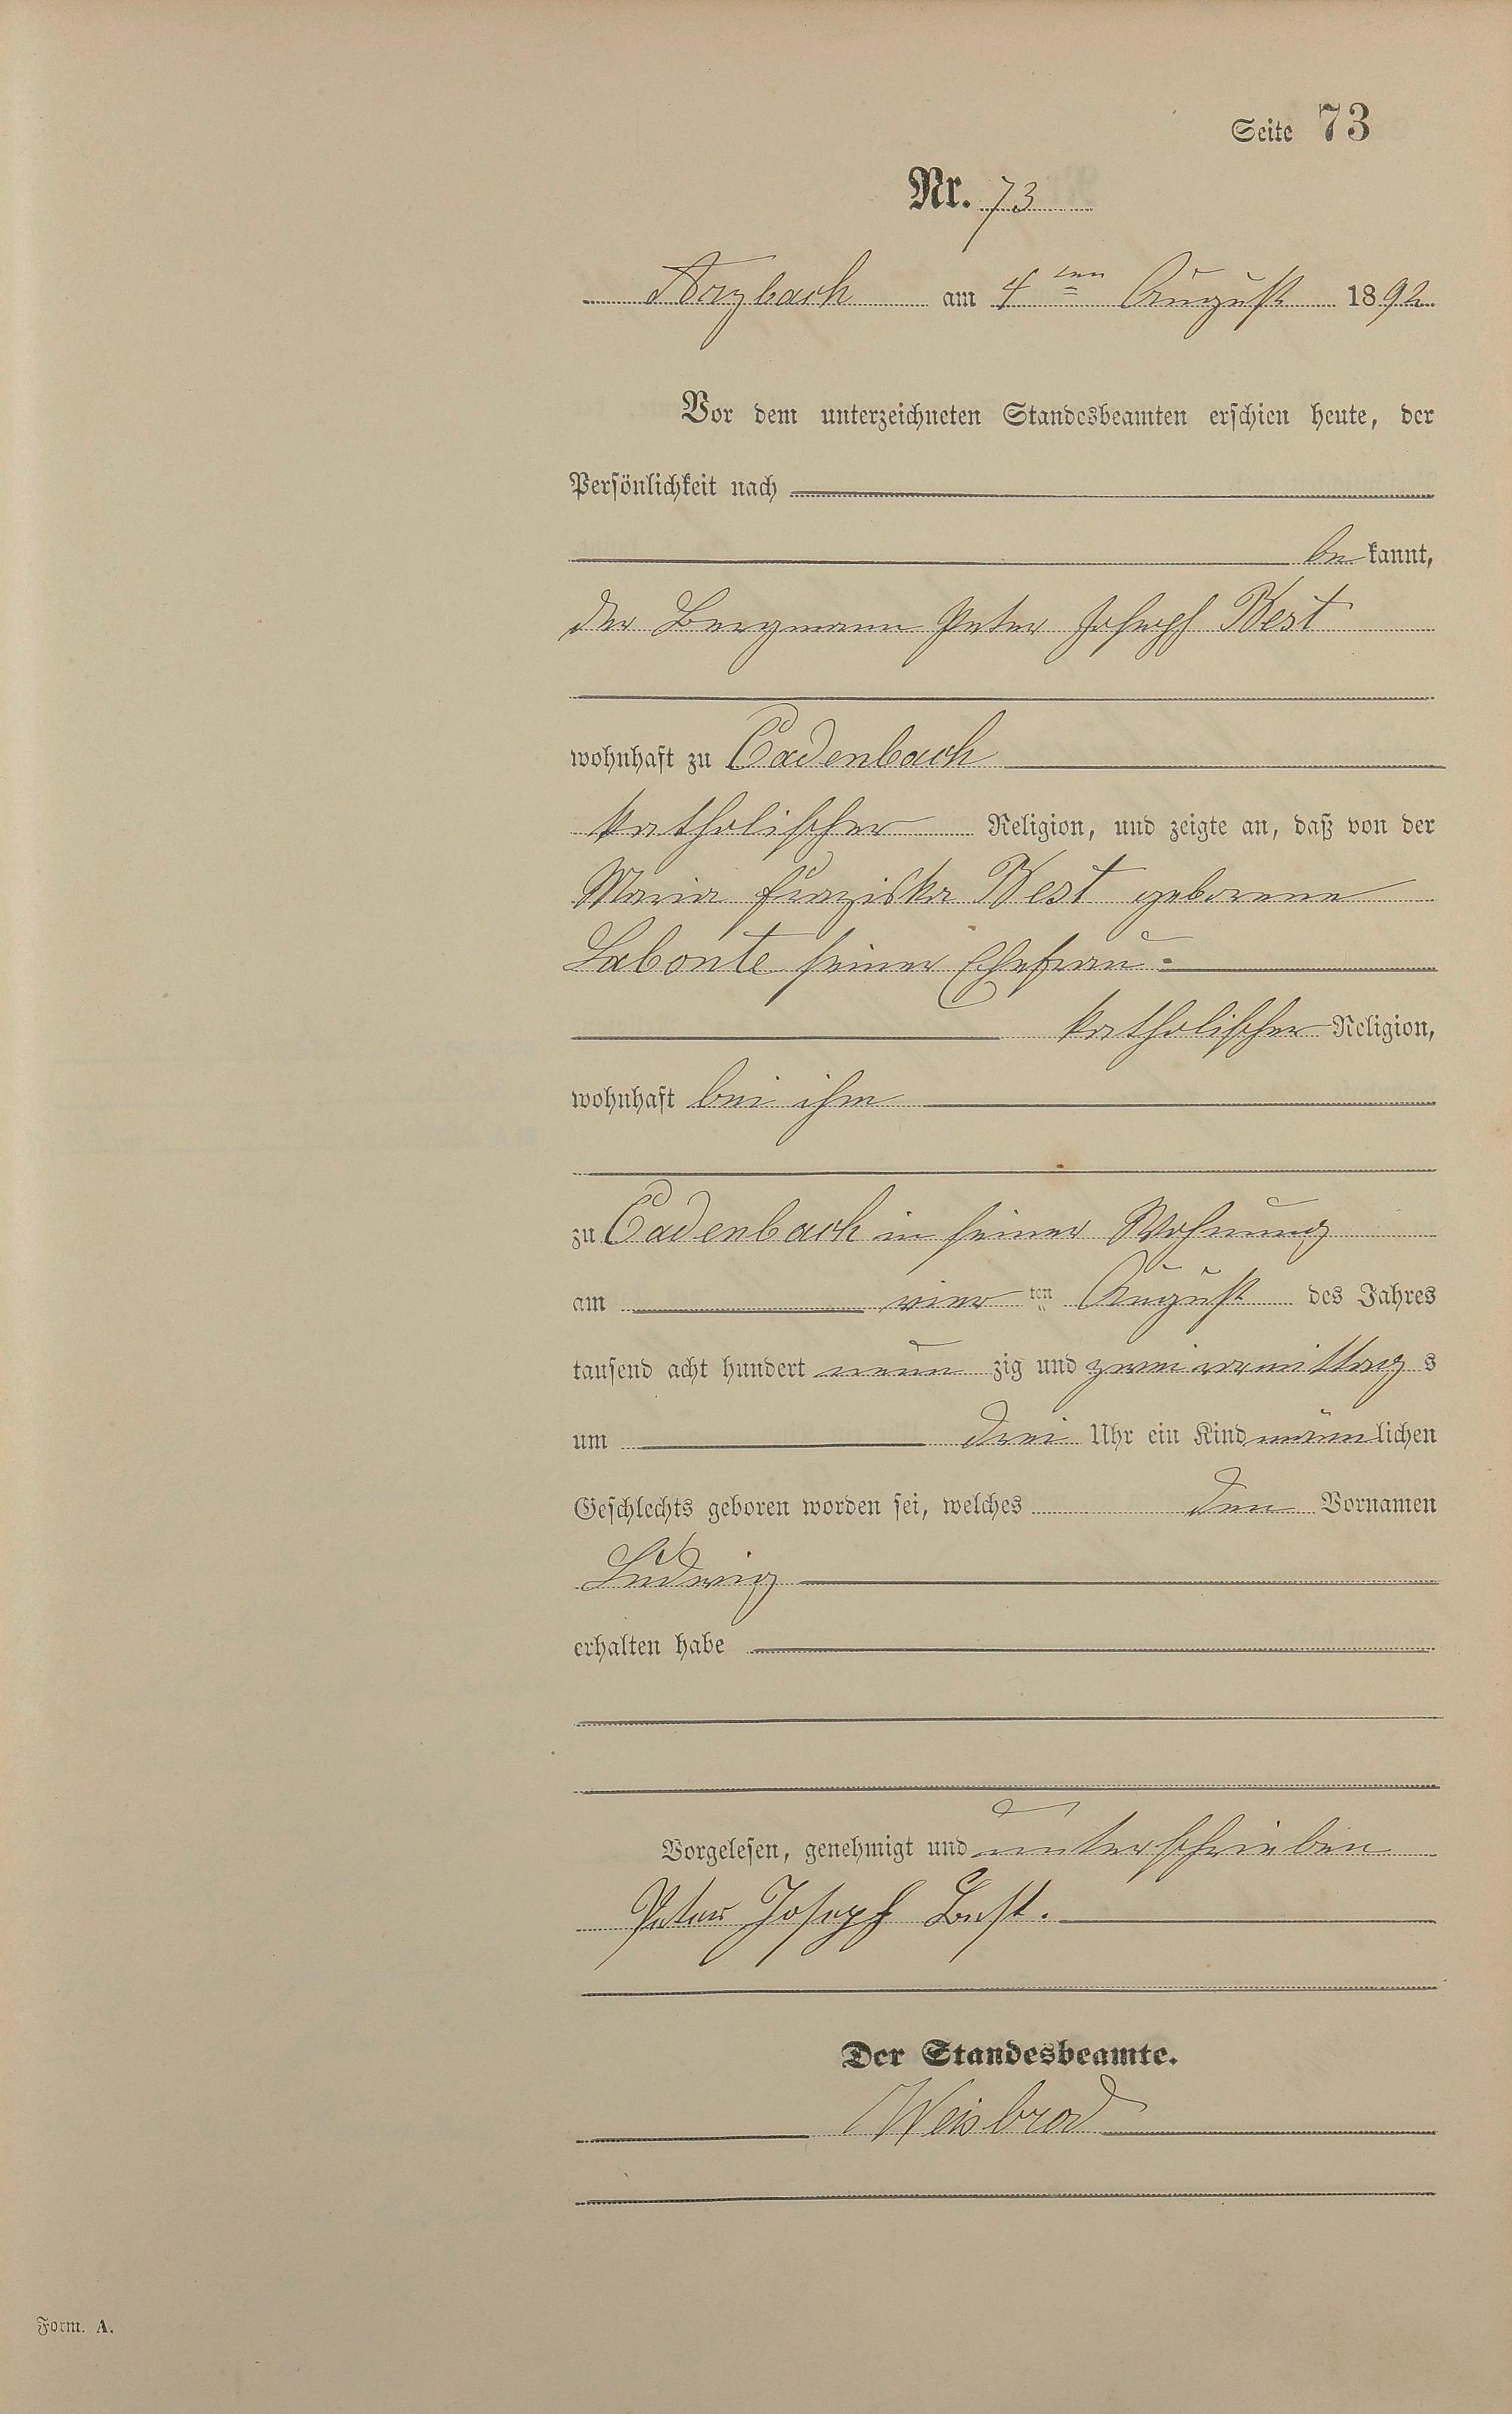 Seite 73
Nr. 73
Arzbach am 4ten August 1892.
Vor dem unterzeichneten Standesbeamten erschien heute, der
Persönlichkeit nach
be kannt,
der Bergmann Peter Joseph Best
wohnhaft zu Cadenbach
katholischer Religion, und zeigte an, daß von der
Maria Franziska Best geborene
Labonte seiner Ehefrau.
katholischer Religion,
wohnhaft bei ihm
zu Cadenbach in seiner Wohnung
am vier ten August des Jahres
tausend acht hundert neun zig und zwei vormittag s
um drei Uhr ein Kind männ lichen
Geschlechts geboren worden sei, welches den Vornamen
Ludwig
erhalten habe
Vorgelesen, genehmigt und unterschrieben
Peter Joseph Best.
Der Standesbeamte.
Weisbrod
Form. A.